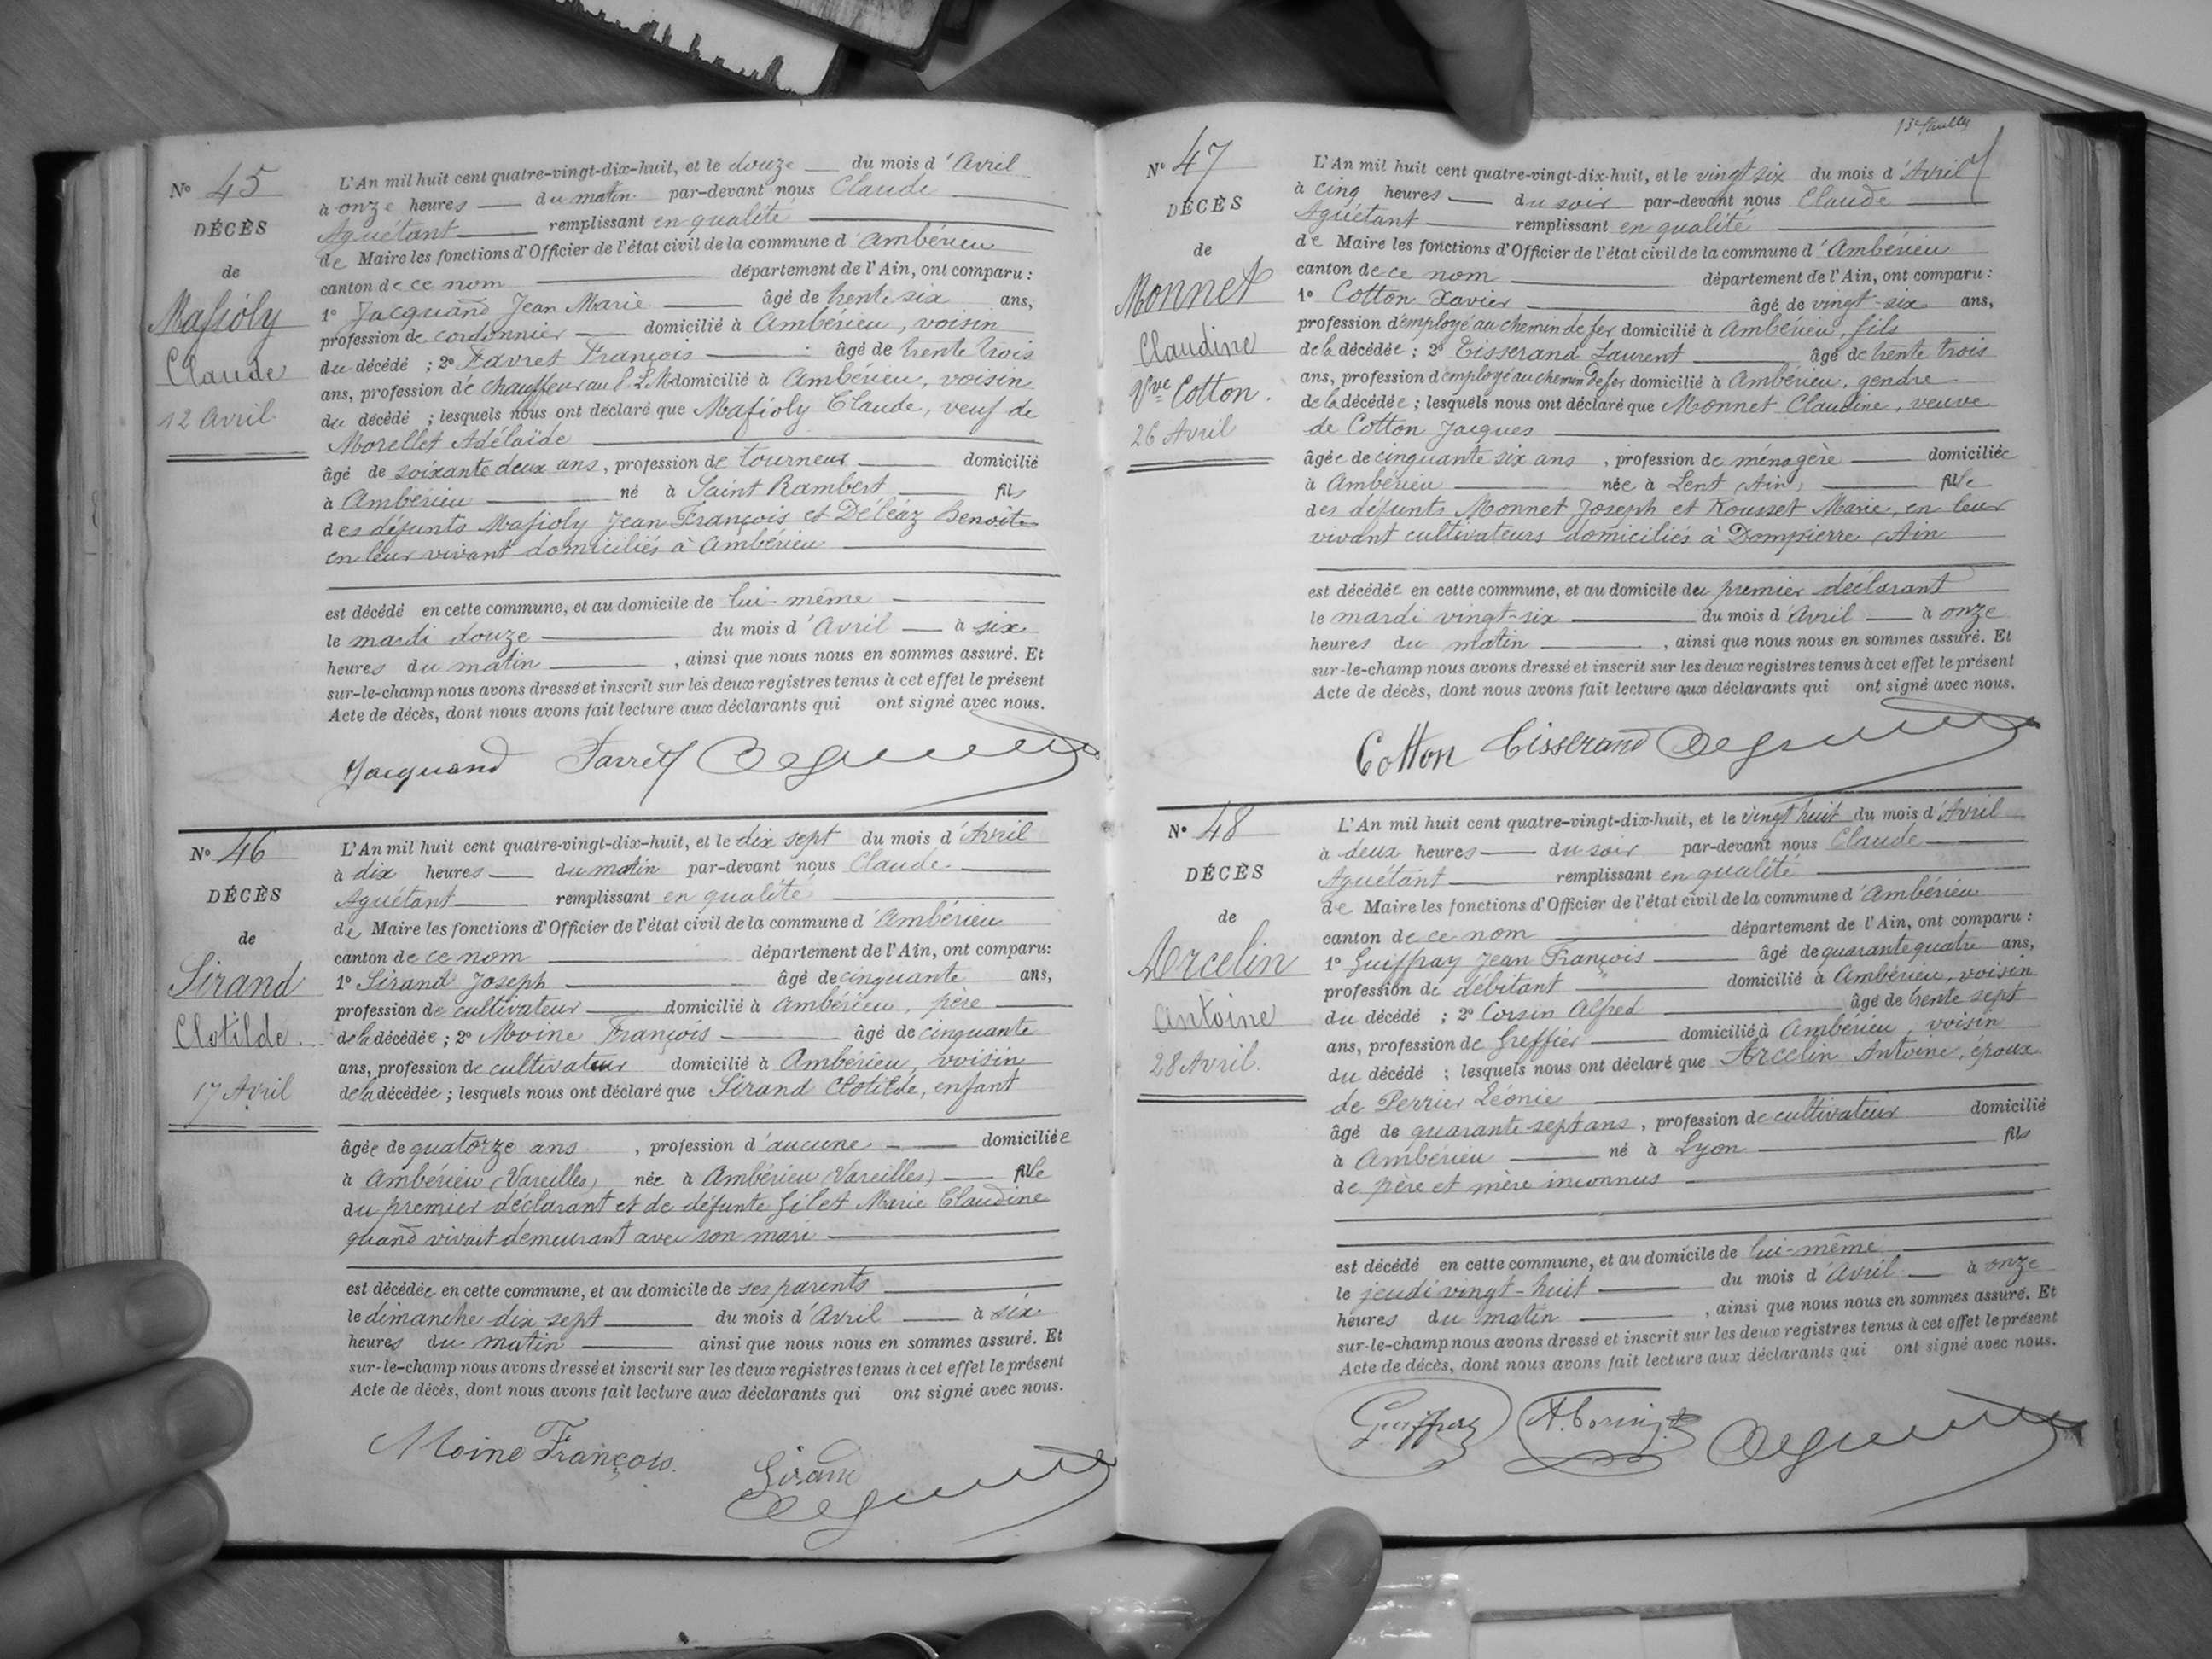 N° 45
DÉCÈS
de
Massioly
Claude
12 Avril
L'An mil huit cent quatre-vingt-dix-huit, et le douze du mois d'Avril
à onze heures du matin par-devant nous Claude
Aguétant remplissant en qualité
de Maire les fonctions d'Officier de l'état civil de la commune d'Ambérieu
canton de ce nom département de l'Ain, ont comparu :
1° Jacquand Jean Marie âgé de trente six ans,
profession de cordonnier domicilié à Ambérieu, voisin
du décédé ; 2° Favret François âgé de trente trois
ans, profession de chauffeur au P.L.M domicilié à Ambérieu, voisin
du décédé ; lesquels nous ont déclaré que Massioly Claude, veuf de
Morellet Adélaïde
âgé de soixante deux ans, profession de tourneur domicilié
à Ambérieu né à Saint Rambert fils
des défunts Massioly Jean François et Déléaz Benoîte
en leur vivant domiciliés à Ambérieu
est décédé en cette commune, et au domicile de lui-même
le mardi douze du mois d'Avril à six
heures du matin, ainsi que nous nous en sommes assuré. Et
sur-le-champ nous avons dressé et inscrit sur les deux registres tenus à cet effet le présent
Acte de décès, dont nous avons fait lecture aux déclarants qui ont signé avec nous.
Jacquand Favret
N° 46
DÉCÈS
de
Sirand
Clotilde
17 Avril
L'An mil huit cent quatre-vingt-dix-huit, et le dix sept du mois d'Avril
à dix heures du matin par-devant nous Claude
Aguétant remplissant en qualité
de Maire les fonctions d'Officier de l'état civil de la commune d'Ambérieu
canton de ce nom département de l'Ain, ont comparu:
1° Sirand Joseph âgé de cinquante ans,
profession de cultivateur domicilié à Ambérieu, père
de la décédée ; 2° Moine François âgé de cinquante
ans, profession de cultivateur domicilié à Ambérieu, voisin
de la décédée ; lesquels nous ont déclaré que Sirand Clotilde, enfant
âgée de quatorze ans, profession d'aucune domiciliée
à Ambérieu (Vareilles) née à Ambérieu (Vareilles) fille
du premier déclarant et de défunte Gilet Marie Claudine
quand vivait demeurant avec son mari
est décédée en cette commune, et au domicile de ses parents
le dimanche dix sept du mois d'Avril à six
heures du matin ainsi que nous nous en sommes assuré. Et
sur-le-champ nous avons dressé et inscrit sur les deux registres tenus à cet effet le présent
Acte de décès, dont nous avons fait lecture aux déclarants qui ont signé avec nous.
Moine François.
Sirand
N° 47
DÉCÈS
de
Monnet
Claudine
Vve Cotton.
26 Avril
L'An mil huit cent quatre-vingt-dix-huit, et le vingt six du mois d'Avril
à cinq heures du soir par-devant nous Claude
Aguétant remplissant en qualité
de Maire les fonctions d'Officier de l'état civil de la commune d'Ambérieu
canton de ce nom département de l'Ain, ont comparu :
1° Cotton Xavier âgé de vingt-six ans,
profession d'employé au chemin de fer domicilié à Ambérieu, fils
de la décédée ; 2° Tisserand Laurent âgé de trente trois
ans, profession d'employé au chemin de fer domicilié à Ambérieu, gendre
de la décédée ; lesquels nous ont déclaré que Monnet Claudine, veuve
de Cotton Jacques
âgée de cinquante six ans, profession de ménagère domiciliée
à Ambérieu née à Lent (Ain) fille
des défunts Monnet Joseph et Rousset Marie, en leur
vivant cultivateurs domiciliés à Dompierre (Ain
est décédée en cette commune, et au domicile du premier déclarant
le mardi vingt-six du mois d'Avril à onze
heures du matin, ainsi que nous nous en sommes assuré. Et
sur-le-champ nous avons dressé et inscrit sur les deux registres tenus à cet effet le présent
Acte de décès, dont nous avons fait lecture aux déclarants qui ont signé avec nous.
Cotton Tisserand
N° 48
DÉCÈS
de
Arcelin
Antoine
28 Avril.
L'An mil huit cent quatre-vingt-dix-huit, et le vingt huit du mois d'Avril
à deux heures du soir par-devant nous Claude
Aguétant remplissant en qualité
de Maire les fonctions d'Officier de l'état civil de la commune d'Ambérieu
canton de ce nom département de l'Ain, ont comparu :
1° Guiffray Jean François âgé de quarante quatre ans,
profession de débitant domicilié à Ambérieu, voisin
du décédé ; 2° Corsin Alfred âgé de trente sept
ans, profession de Greffier domicilié à Ambérieu, voisin
du décédé ; lesquels nous ont déclaré que Arcelin Antoine, époux
de Perrier Léonie
âgé de quarante-sept ans, profession de cultivateur domicilié
à Ambérieu né à Lyon fils
de père et mère inconnus
est décédé en cette commune, et au domicile de lui-même
le jeudi vingt-huit du mois d'Avril à onze
heures du matin, ainsi que nous nous en sommes assuré. Et
sur-le-champ nous avons dressé et inscrit sur les deux registres tenus à cet effet le présent
Acte de décès, dont nous avons fait lecture aux déclarants qui ont signé avec nous.
Guiffray